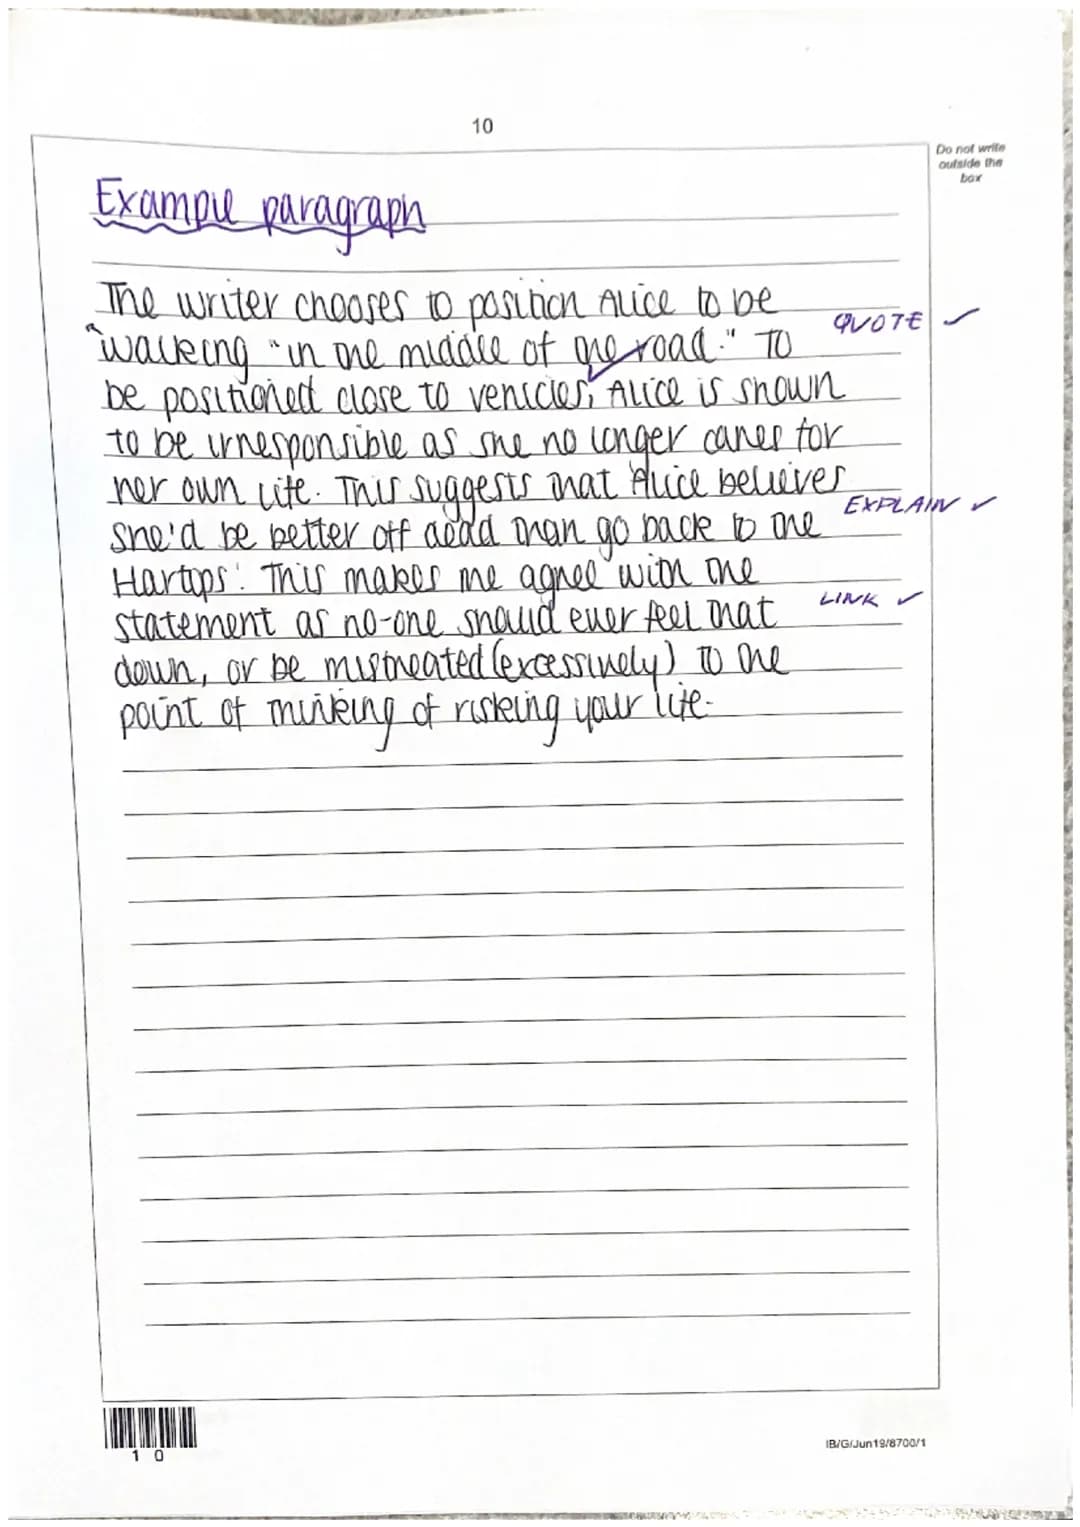 10
Do not write
outside the
box
Example paragraph
The writer chooses to position Alice to be
"walking "in the middle of the road." To
QUOTE ✓
be positioned close to vehicles, Alice is shown
to be irresponsible as she no longer cares for
her own life. This suggests that Alice believes
she'd be better off dead than go back to the
EXPLAIN ✓
Hartops'. This makes me agree with the
statement as no-one should ever feel that
LINK ✓
down, or be mistreated (excessively) to the
point of thinking of risking your life.
1 0
IB/G/Jun19/8700/1